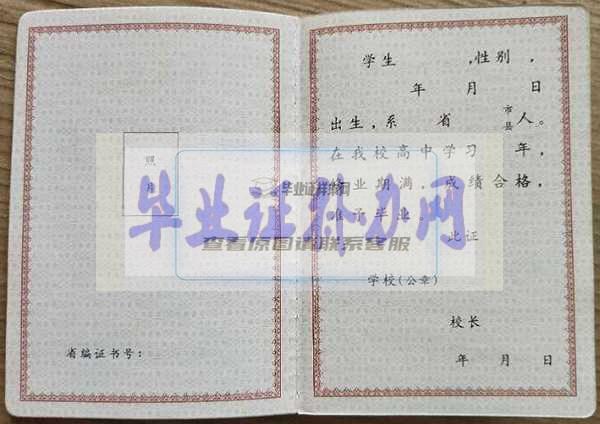 照
片
省编证书号：
学生　　　，性别　，
年　月　日
出生，系　省　市县　人。
在我校高中学习　年，
修业期满，成绩合格，
准予毕业
此证
学校(公章)
校长
年　月　日
毕业证样本网
毕业证补办网
查看原图请联系客服